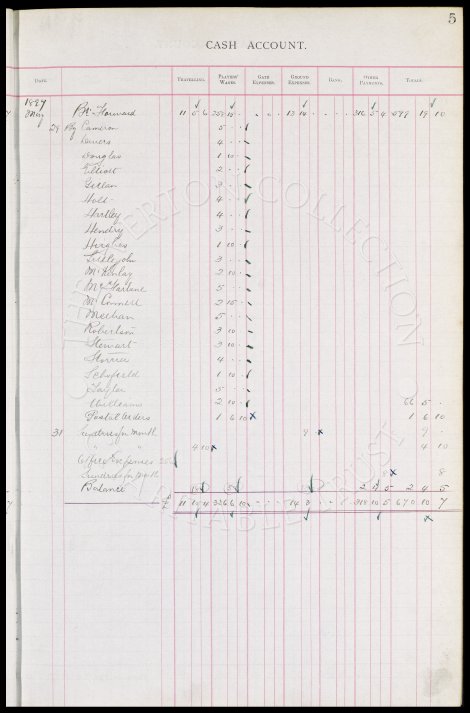 5
CASH ACCOUNT.
DATE. TRAVELLING. PLAYERS' WAGES. GATE EXPENSES. GROUND EXPENSES. BANK. OTHER PAYMENTS. TOTALS.
1897
May Bt. Forward 11 5 6 13 14 316 5 4 599 19 10
29 By Cameron 5
4
Douglas 1 10
Elliott 2
Gillan 3
Holt 4
Hartley 4
Hendry 3
Hughes 1 10
Littlejohn 3
McKinlay 2 10
5
McConnell 2 15
Meehan 5
Robertson 3 10
Stewart 3 10
Storrier 4
Schofield 1 10
Taylor 5
Williams 2 10 66 5
Postal Orders 1 6 10 1 6 10
31 Sundries for month 9 9
4 10 4 10
Office Expenses
Sundries for month 8 8
Balance 2 4 5
£ 11 10 4 326 6 10 14 3 318 10 5 670 10 7
EVERTON COLLECTION
CHARITABLE TRUST